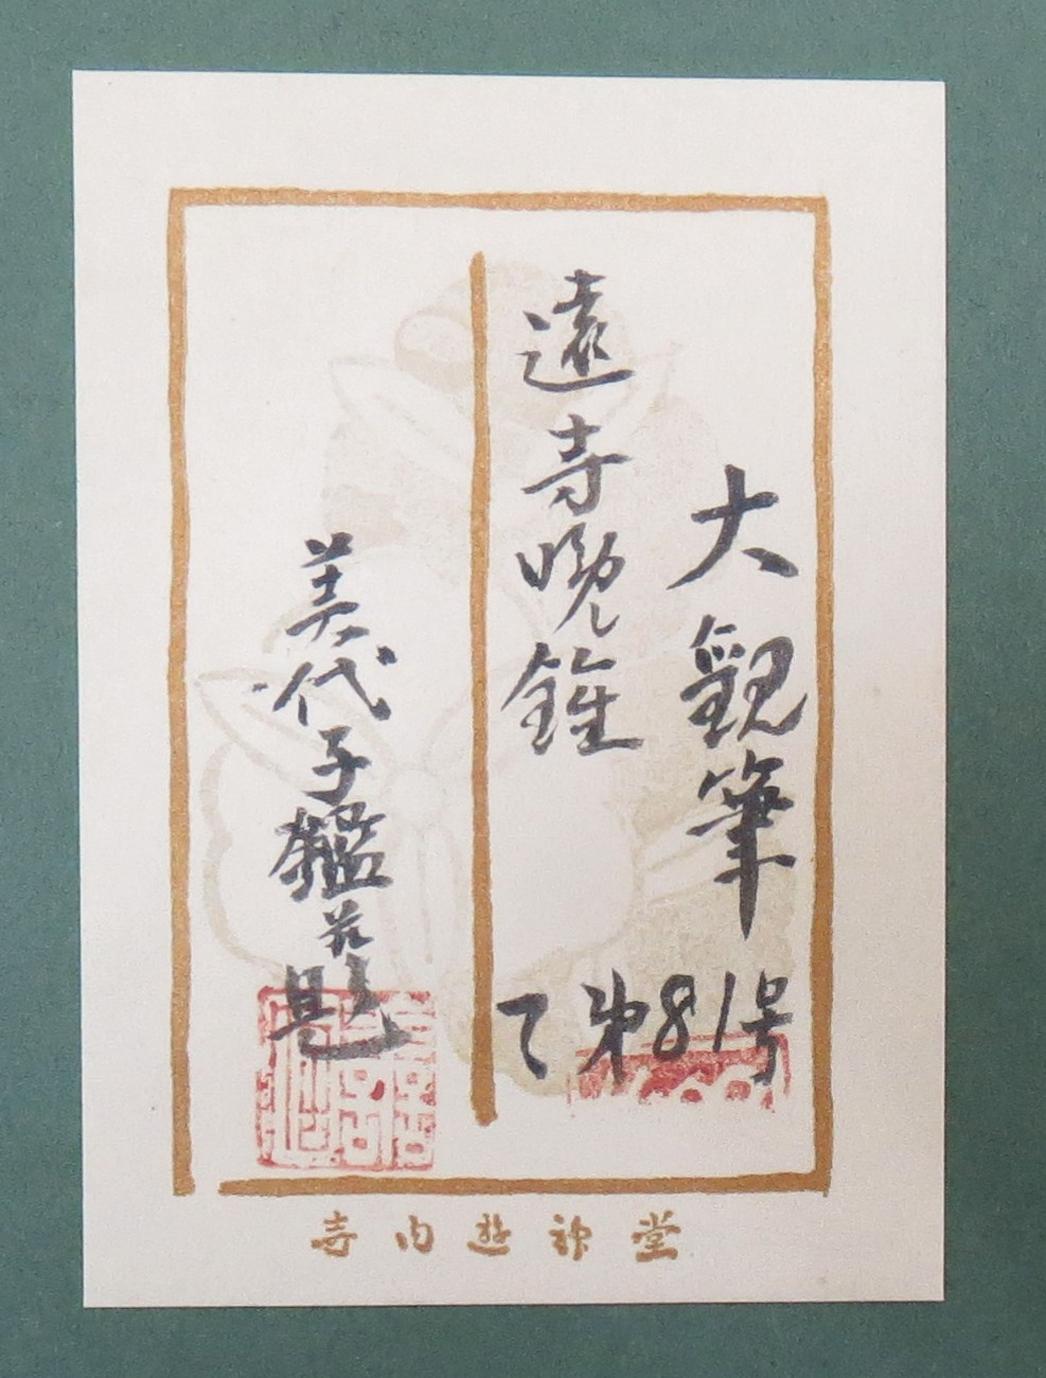 大観筆
遠寺晩鐘
て第81号
美代子鑑題
寺内遊神堂